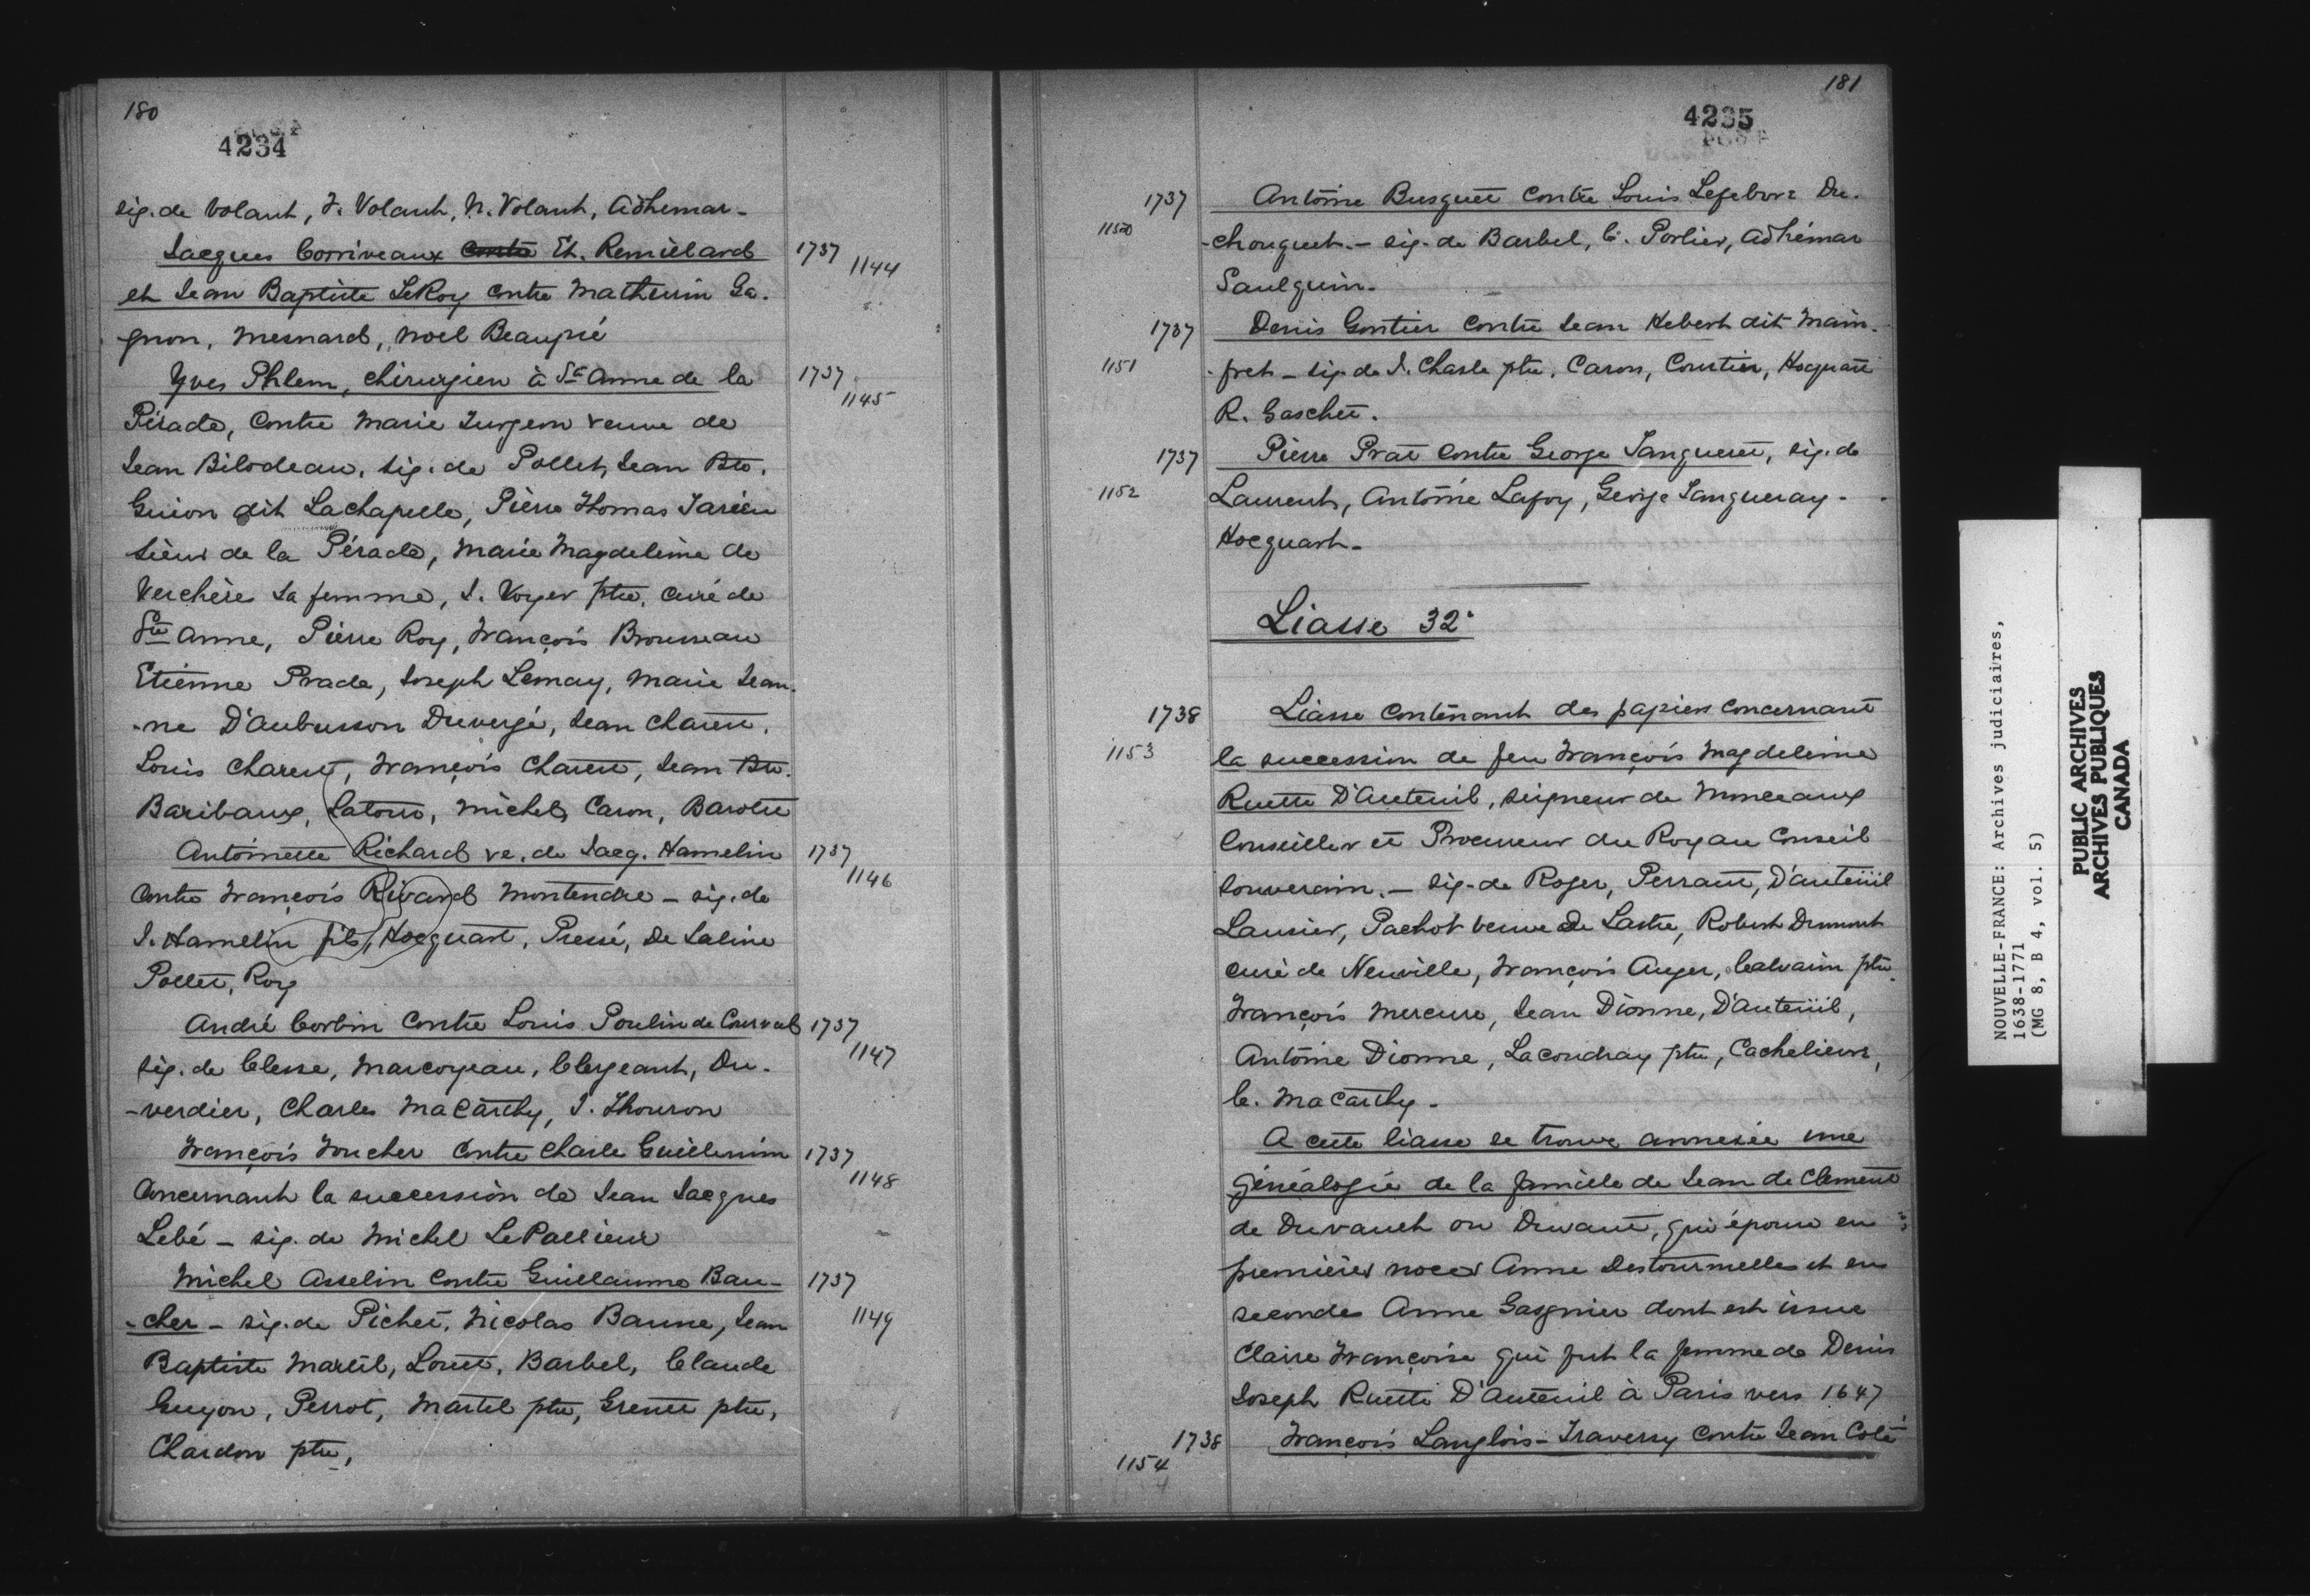 180
4234
sig. de Volant, F. Volant, N. Volant, Adhemar -
Jacques Corriveaux contre Et. Remillard 1737 1144
et Jean Baptiste LeRoy contre Mathurin Ga.
gnon, Mesnard, Noel Beaupré
Yves Phlem, chirurgien à Ste Anne de la 1737 1145
Pérade, contre Marie Turgeon veuve de
Jean Bilodeau. sig. de Pollet, Jean Bte.
Guion dit Lachapelle, Pierre Thomas Tarieu
Sieur de la Pérade, Marie Magdeleine de
Verchère sa femme, J. Voyer ptre, curé de
Ste Anne, Pierre Roy, François Brousseau
Etienne Prade, Joseph Lemay, Marie Jean.
-ne D'aubusson Duvergé, Jean Charest,
Louis Charest, François Charest, Jean Bte.
Baribaux, Latour, Michel Caron, Barolet
Antoinette Richard ve. de Jacq. Hamelin 1737 1146
contre François Rivard Montendre - sig. de
J. Hamelin fils, Hocquart, Pressé, De Saline
Pollet, Roy
André Corbin contre Louis Poulin de Courval 1737 1147
sig. de Clesse, Marcoyeau, Clergeant, Du-
-verdier, Charles Macarthy, J. Thouron
François Foucher contre Charle Guillemin 1737 1148
Concernant la succession de Jean Jacques
Lebé - sig. de Michel LePallieur
Michel Asselin contre Guillaume Bau- 1737 1149
-cher - sig. de Pichet, Nicolas Baune, Jean
Baptiste Martel, Louet, Barbel, Claude
Guyon, Perrot, Martel ptre, Grenet ptre,
Chardon ptre,
181
4235
1737 1150 Antoine Busquet contre Louis Lefebvre Du.
-chouquet. - sig. de Barbel, C. Porlier, Adhémar
Saulquin.
1737 1151 Denis Gontier contre Jean Hebert dit Main.
-fret - sig. de J. Charle ptre, Caron, Courtin, Hocquart
R. Gaschet.
1737 1152 Pierre Prat contre George Tangueret, sig. de
Laurent, Antoine Lafoy, George Tangueray -
Hocquart -
Liasse 32e
1738 1153 Liasse contenant des papiers concernant
la succession de feu François Magdeleine
Ruette D'Auteuil, seigneur de Monceaux
Conseiller et Procureur du Roy au Conseil
Souverain. - sig. de Roger, Perrault, D'auteüil
Lanoier, Pachot veuve De Lastre, Robert Dumont
curé de Neuville, François Auger, Calvarin ptre.
François Mercure, Jean Dionne, D'auteüil,
Antoine Dionne, Lacoudray ptre, Cachelievre,
C. Macarthy -
A cette liasse se trouve annexée une
généalogie de la famille de Jean de Clement
de Duvault ou Duvant, qui épouse en
premières noces Anne Destourmelles et en
secondes Anne Gasgnier dont est issue
Claire Françoise qui fut la femme de Denis
Joseph Ruette D'Auteuil à Paris vers 1647
1738 1154 François Langlois - Traversy contre Jean Colé
NOUVELLE-FRANCE: Archives judiciaires,
1638-1771
(MG 8, B 4, vol. 5)
PUBLIC ARCHIVES
ARCHIVES PUBLIQUES
CANADA